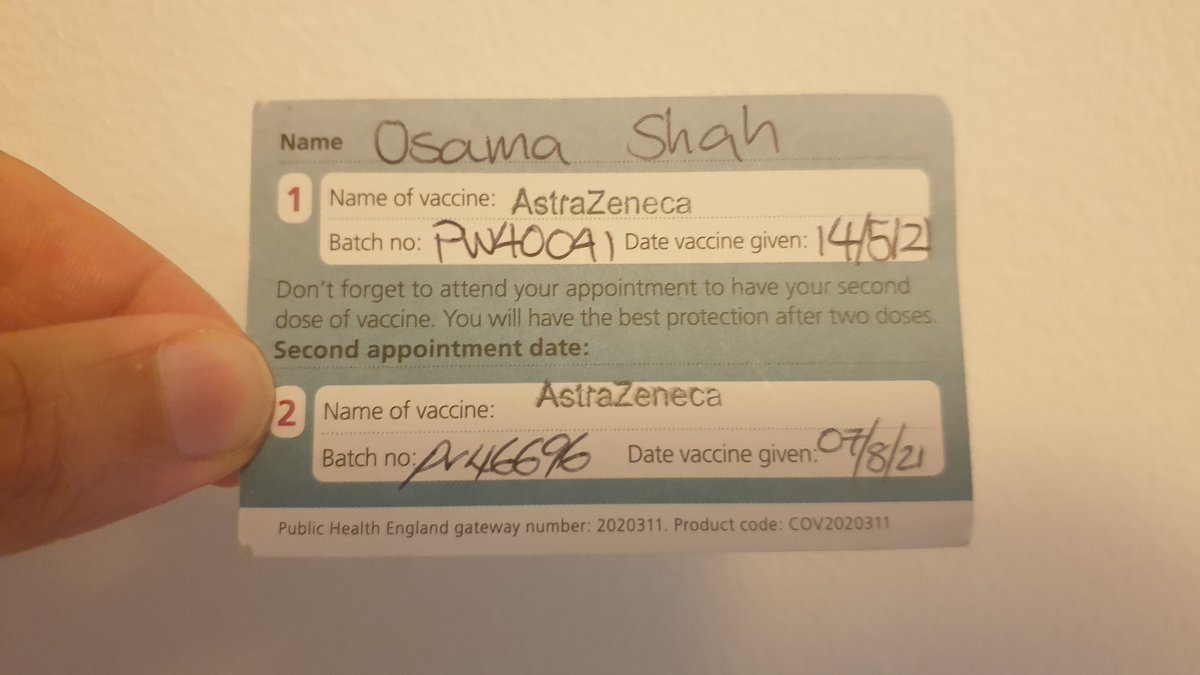 Name Osama Shah
1 Name of vaccine: AstraZeneca
Batch no: PW40041 Date vaccine given: 14/5/21
Don't forget to attend your appointment to have your second
dose of vaccine. You will have the best protection after two doses.
Second appointment date:
2 Name of vaccine: AstraZeneca
Batch no: PV46696 Date vaccine given: 07/8/21
Public Health England gateway number: 2020311. Product code: COV2020311